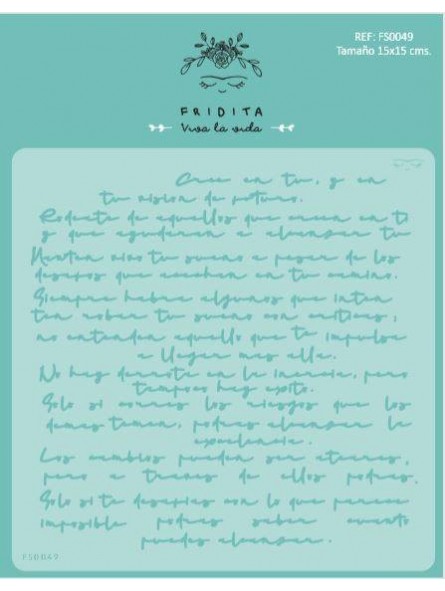 REF: FS0049
Tamaño 15x15 cms.
FRIDITA
Viva la vida
Cree en tu, y en
tu vision de futuro.
Rodeate de aquellos que creen en ti
y que ayudaran a alcanzar tu
Manten vivo tu sueno a pesar de los
desafios que acechan en tu camino.
Siempre habra algunos que inten
ten robar tu sueno con criticas,
no entienden aquello que te impulsa
a llegar mas alla.
No hay derrota en la inercia, pero
tampoco hay exito.
Solo si corres los riesgos que los
demas temen, podras alcanzar la
excelencia.
Los cambios pueden ser atroces,
pero a traves de ellos podras.
Solo si te desafias con lo que parece
imposible podras saber cuanto
puedes alcanzar.
FS0049